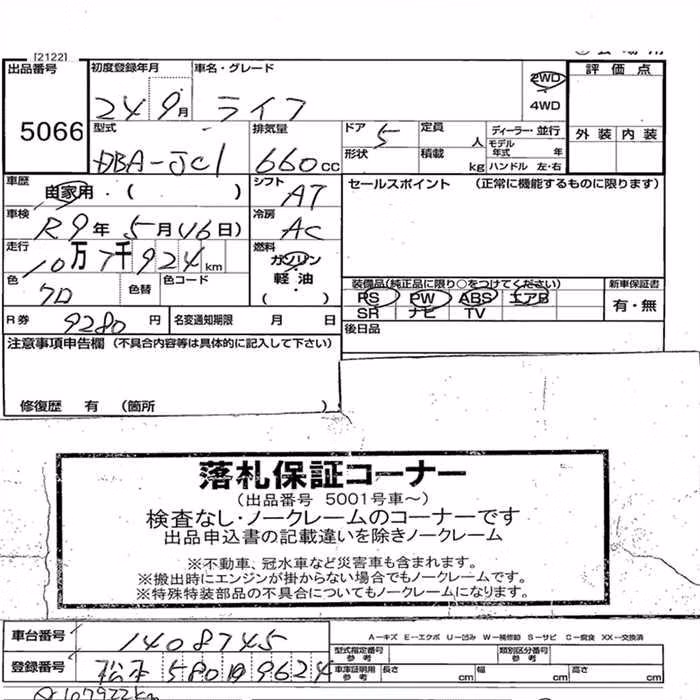 [2122]
出品番号 5066
初度登録年月 24 9月
車名・グレード ライフ
2WD
4WD
評価点
外装 内装
型式 DBA-JC1
排気量 660cc
ドア 5
定員 人
ディーラー・並行
モデル年式 年
形状
積載 kg
ハンドル 左・右
車歴 自家用・( )
シフト AT
セールスポイント (正常に機能するものに限ります)
車検 R9年 5月(16日)
冷房 AC
走行 10万7千924km
燃料 ガソリン・軽油・( )
色 クロ
色替
色コード
装備品(純正品に限り○をつけてください)
PS PW ABS エアB
SR ナビ TV
新車保証書
有・無
R券 9280円
名変通知期限 月 日
後日品
注意事項申告欄 (不具合内容等は具体的に記入して下さい)
修復歴 有 (箇所 )
落札保証コーナー
(出品番号 5001号車~)
検査なし・ノークレームのコーナーです
出品申込書の記載違いを除きノークレーム
※不動車、冠水車など災害車も含まれます。
※搬出時にエンジンが掛からない場合でもノークレームです。
※特殊特装部品の不具合についてもノークレームになります。
車台番号 1408745
A-キズ E-エクボ U-凹み W-補修跡 S-サビ C-腐食 XX-交換済
型式指定番号 参考
類別区分番号 参考
登録番号 松本 580 9624
車庫証明用 参考 長さ cm 幅 cm 高さ cm
107922km